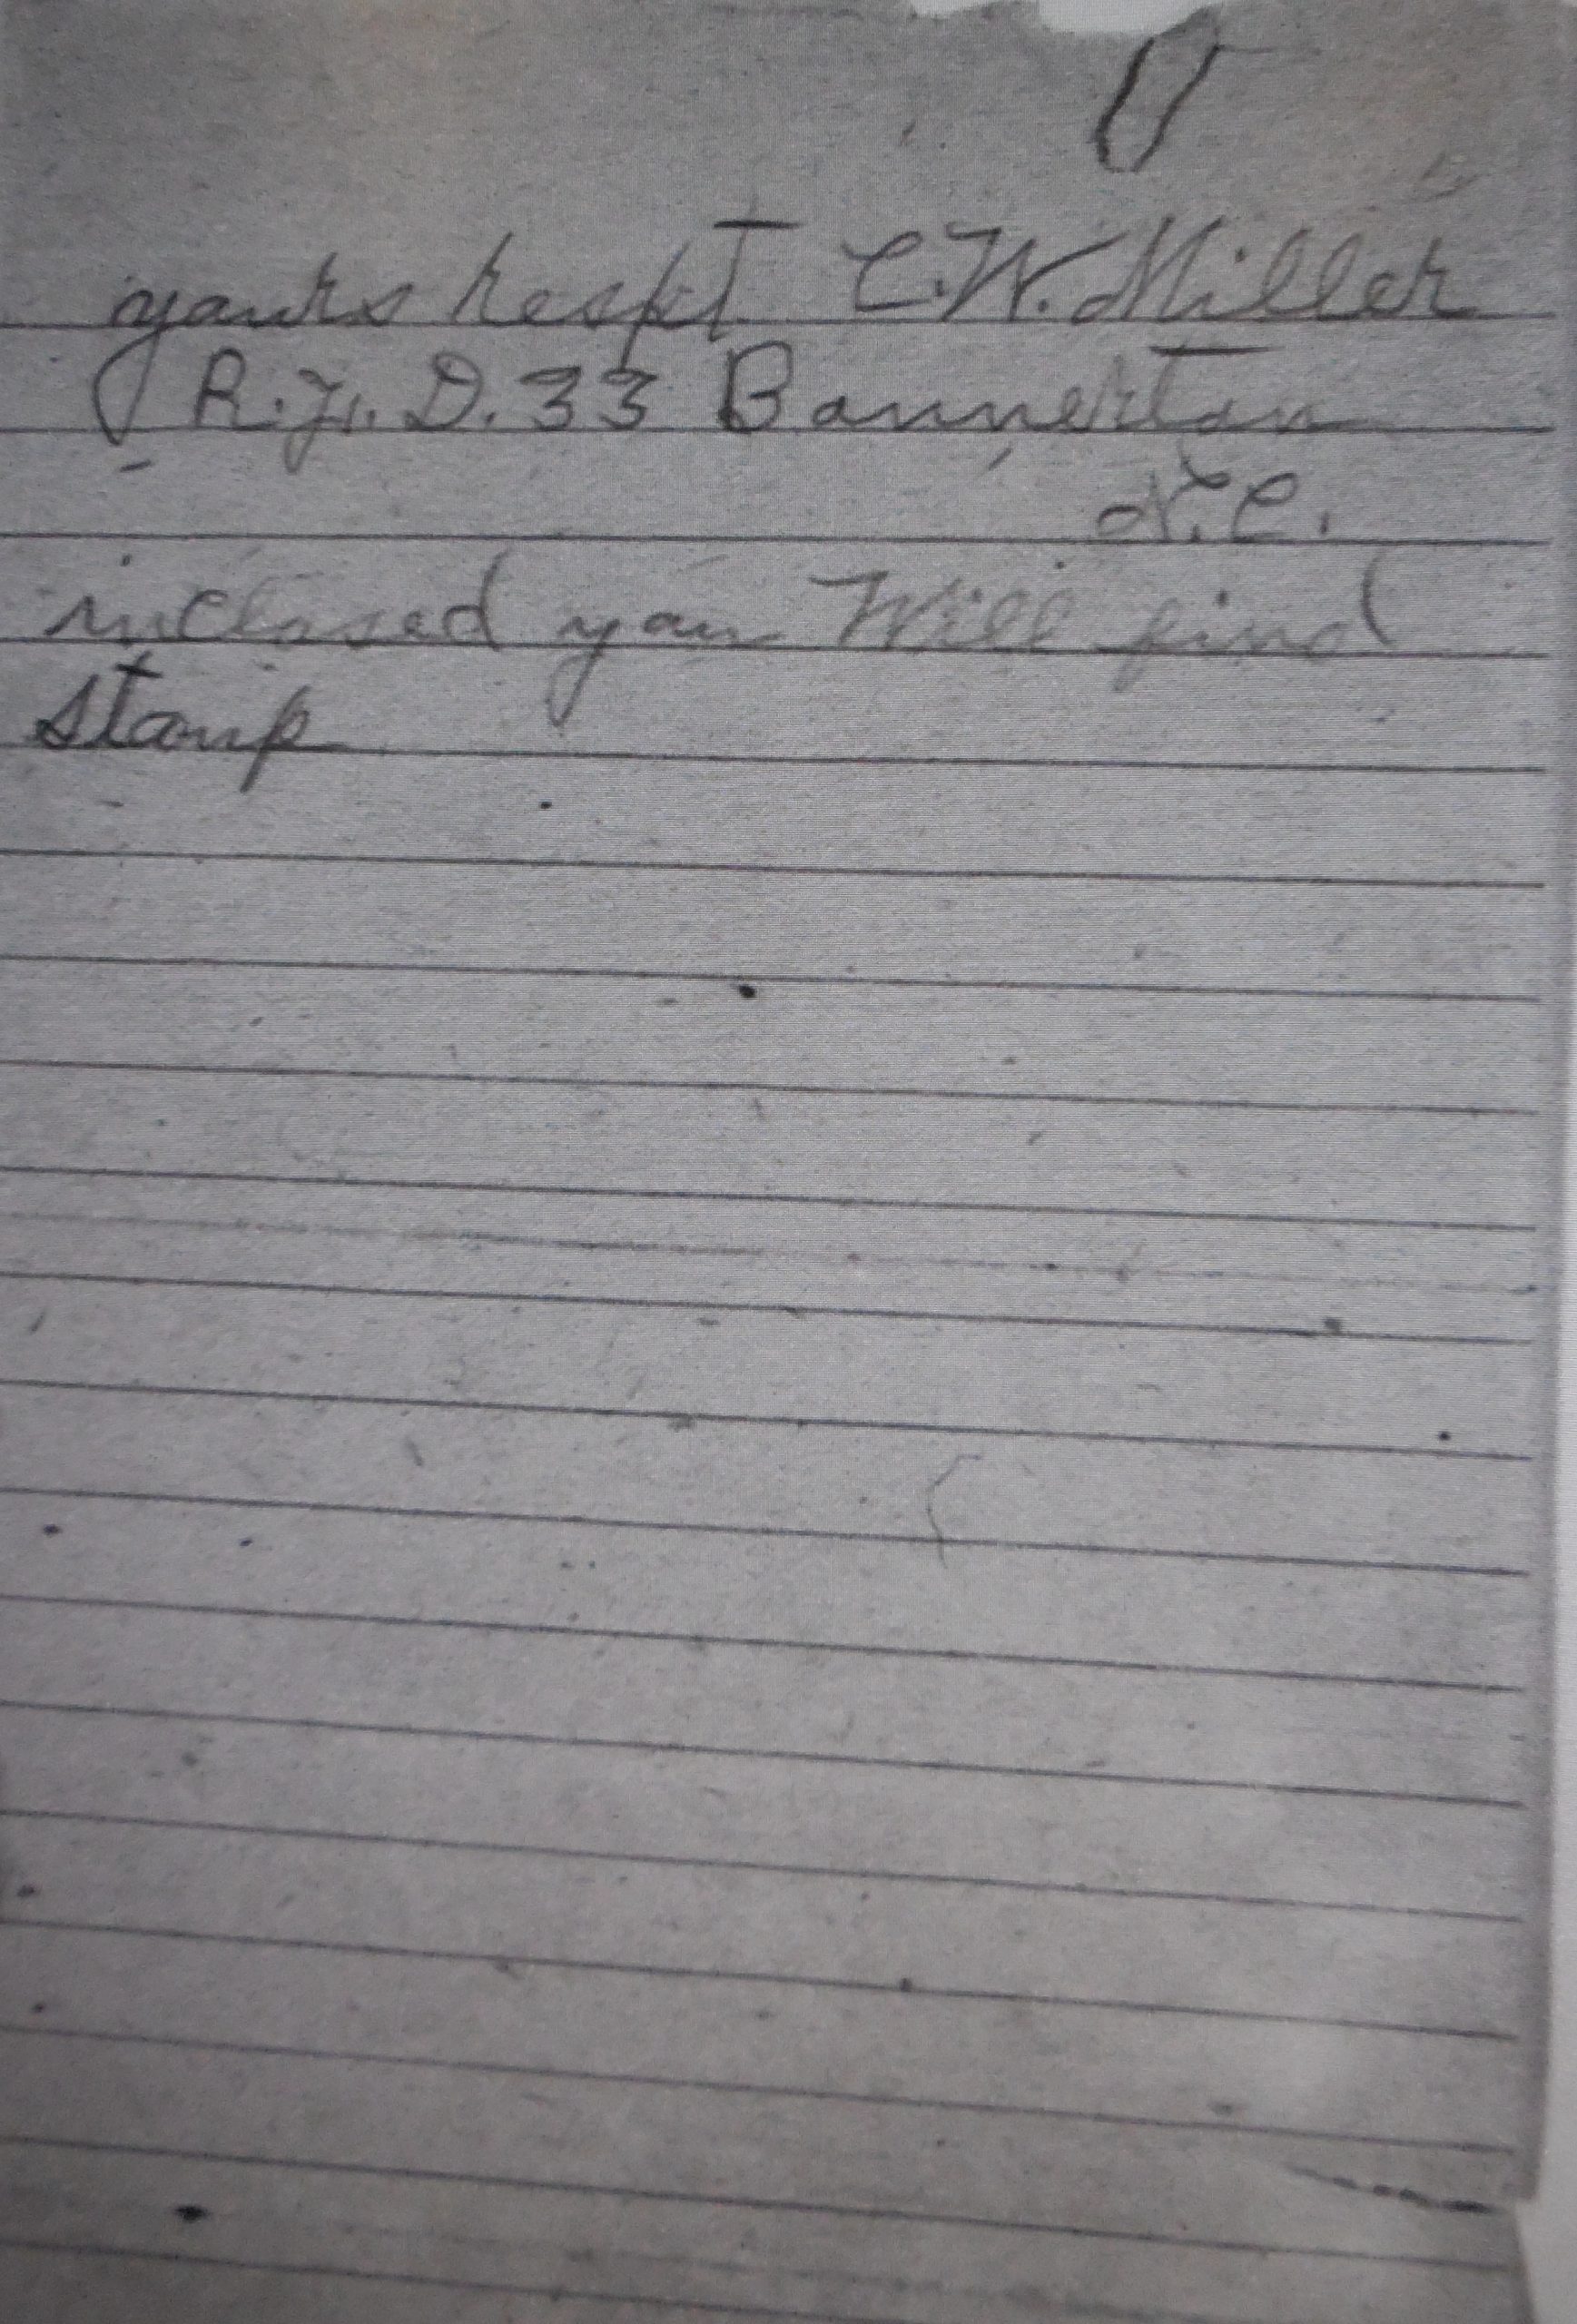 yours respt C.W. Miller
R.F.D. 33 Bannerton
N.C.
inclosed you Will find
stamp